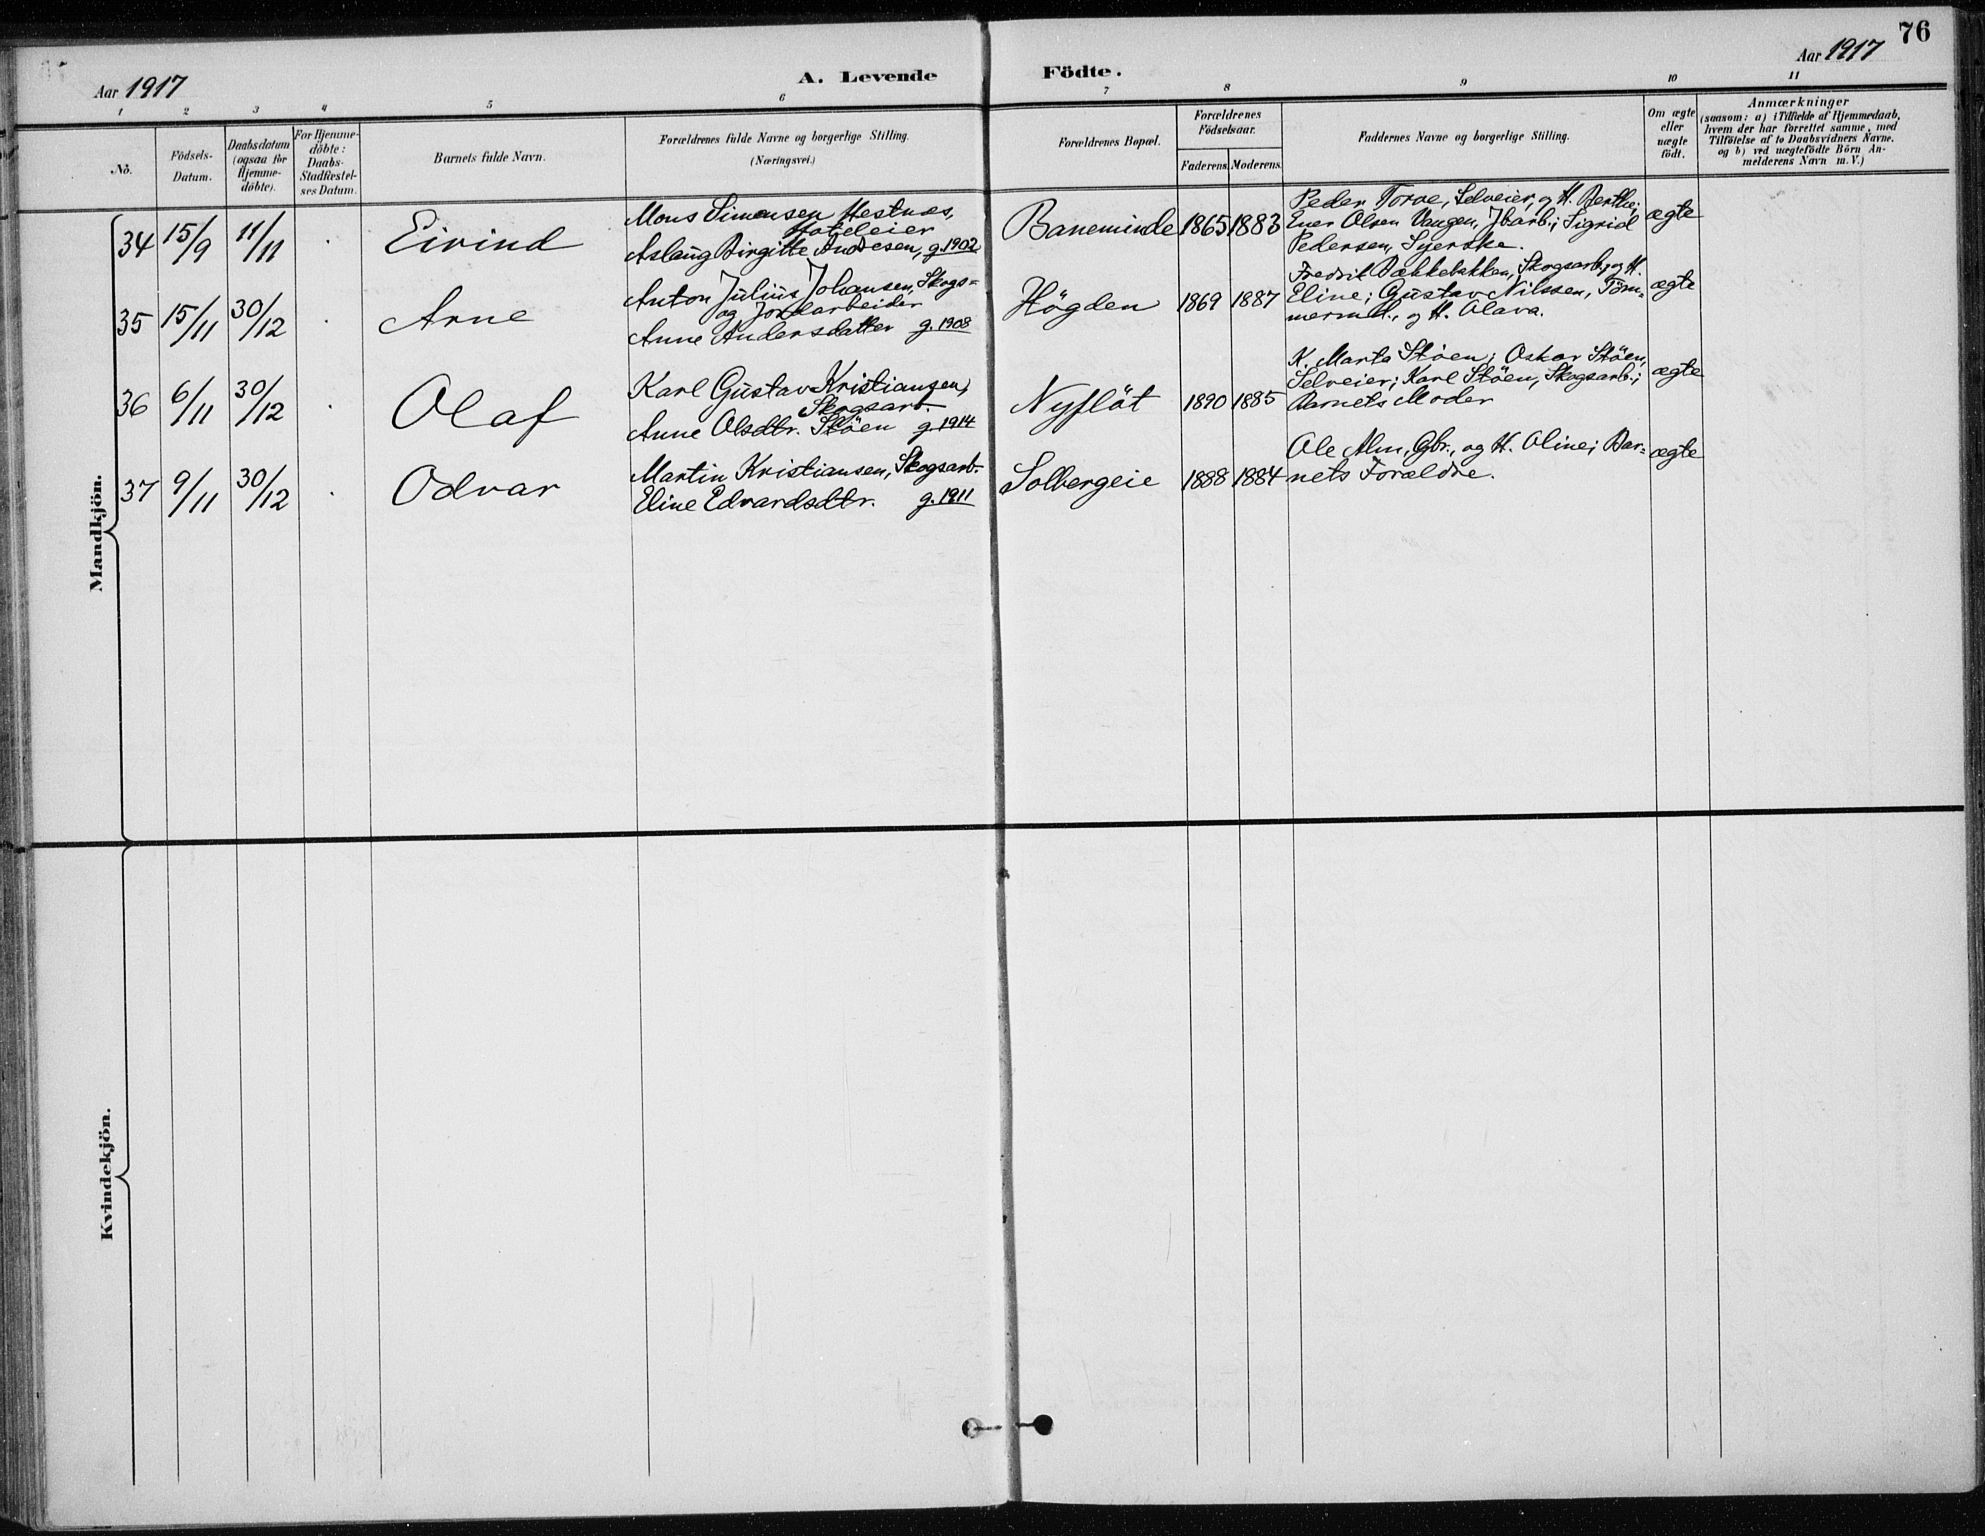 76
Aar 1917
A. Levende Födte.
Aar 1917
1 2 3 4 5 6 7 8 9 10 11
No.
Födsels-
Datum.
Daabsdatum
(ogsaa for
Hjemme-
döbte).
For Hjemme-
döbte:
Daabs-
Stadfestel-
ses Datum.
Barnets fulde Navn.
Forældrenes fulde Navne og borgerlige Stilling.
(Næringsvei.)
Forældrenes Bopæl.
Forældrenes
Födselsaar.
Faderens. Moderens.
Faddernes Navne og borgerlige Stilling.
Om ægte
eller
uægte
födt.
Anmærkninger
(saasom: a) i Tilfælde af Hjemmedaab,
hvem der har forrettet samme, med
Tilföielse af to Daabsvidners Navne.
og b) ved uægtefödte Börn An-
melderens Navn m. V.)
Mandkjön.
34 15/9 11/11 Eivind
Mons Simonsen Hestnes,
Hoteleier
Aslaug Birgitte Andresen, g. 1902
Baneminde 1865 1883
Peder Torve, Selveier, og H. Berthe;
Ener Olsen Vangen, Jbarb.; Sigrid
Pedersen, Syerske.
ægte
35 15/11 30/12 Arne
Anton Julius Johansen, Skogs-
og Jordarbeider
Anne Andersdatter g. 1908
Högden 1869 1887
Fredrik Bækkebakken, Skogsarb., og H.
Eline; Gustav Nilssen, Töm-
merm., og H. Olava.
ægte
36 6/11 30/12 Olaf
Karl Gustav Kristiansen,
Skogsarb.
Anne Olsdtr. Stöen g. 1914
Nyflöt 1890 1885
K. Marta Stöen; Oskar Stöen,
Selveier; Karl Stöen, Skogsarb.;
Barnets Moder
ægte
37 9/11 30/12 Odvar
Martin Kristiansen, Skogsarb.
Eline Edvardsdtr. g. 1911
Solbergeie 1888 1884
Ole Alm, Gbr., og H. Oline; Bar-
nets Forældre.
ægte
Kvindekjön.